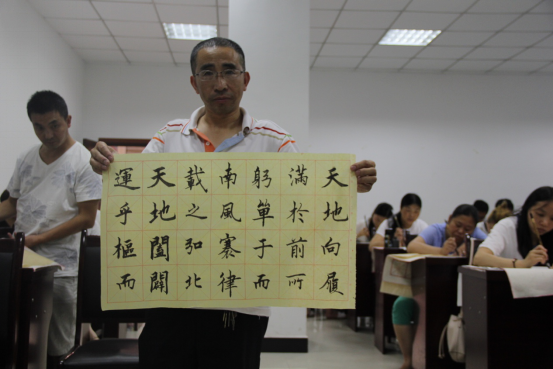 天地向履
滿於前所
躬單于而
南風寒律
載之弘北
天地闔闢
運乎樞而